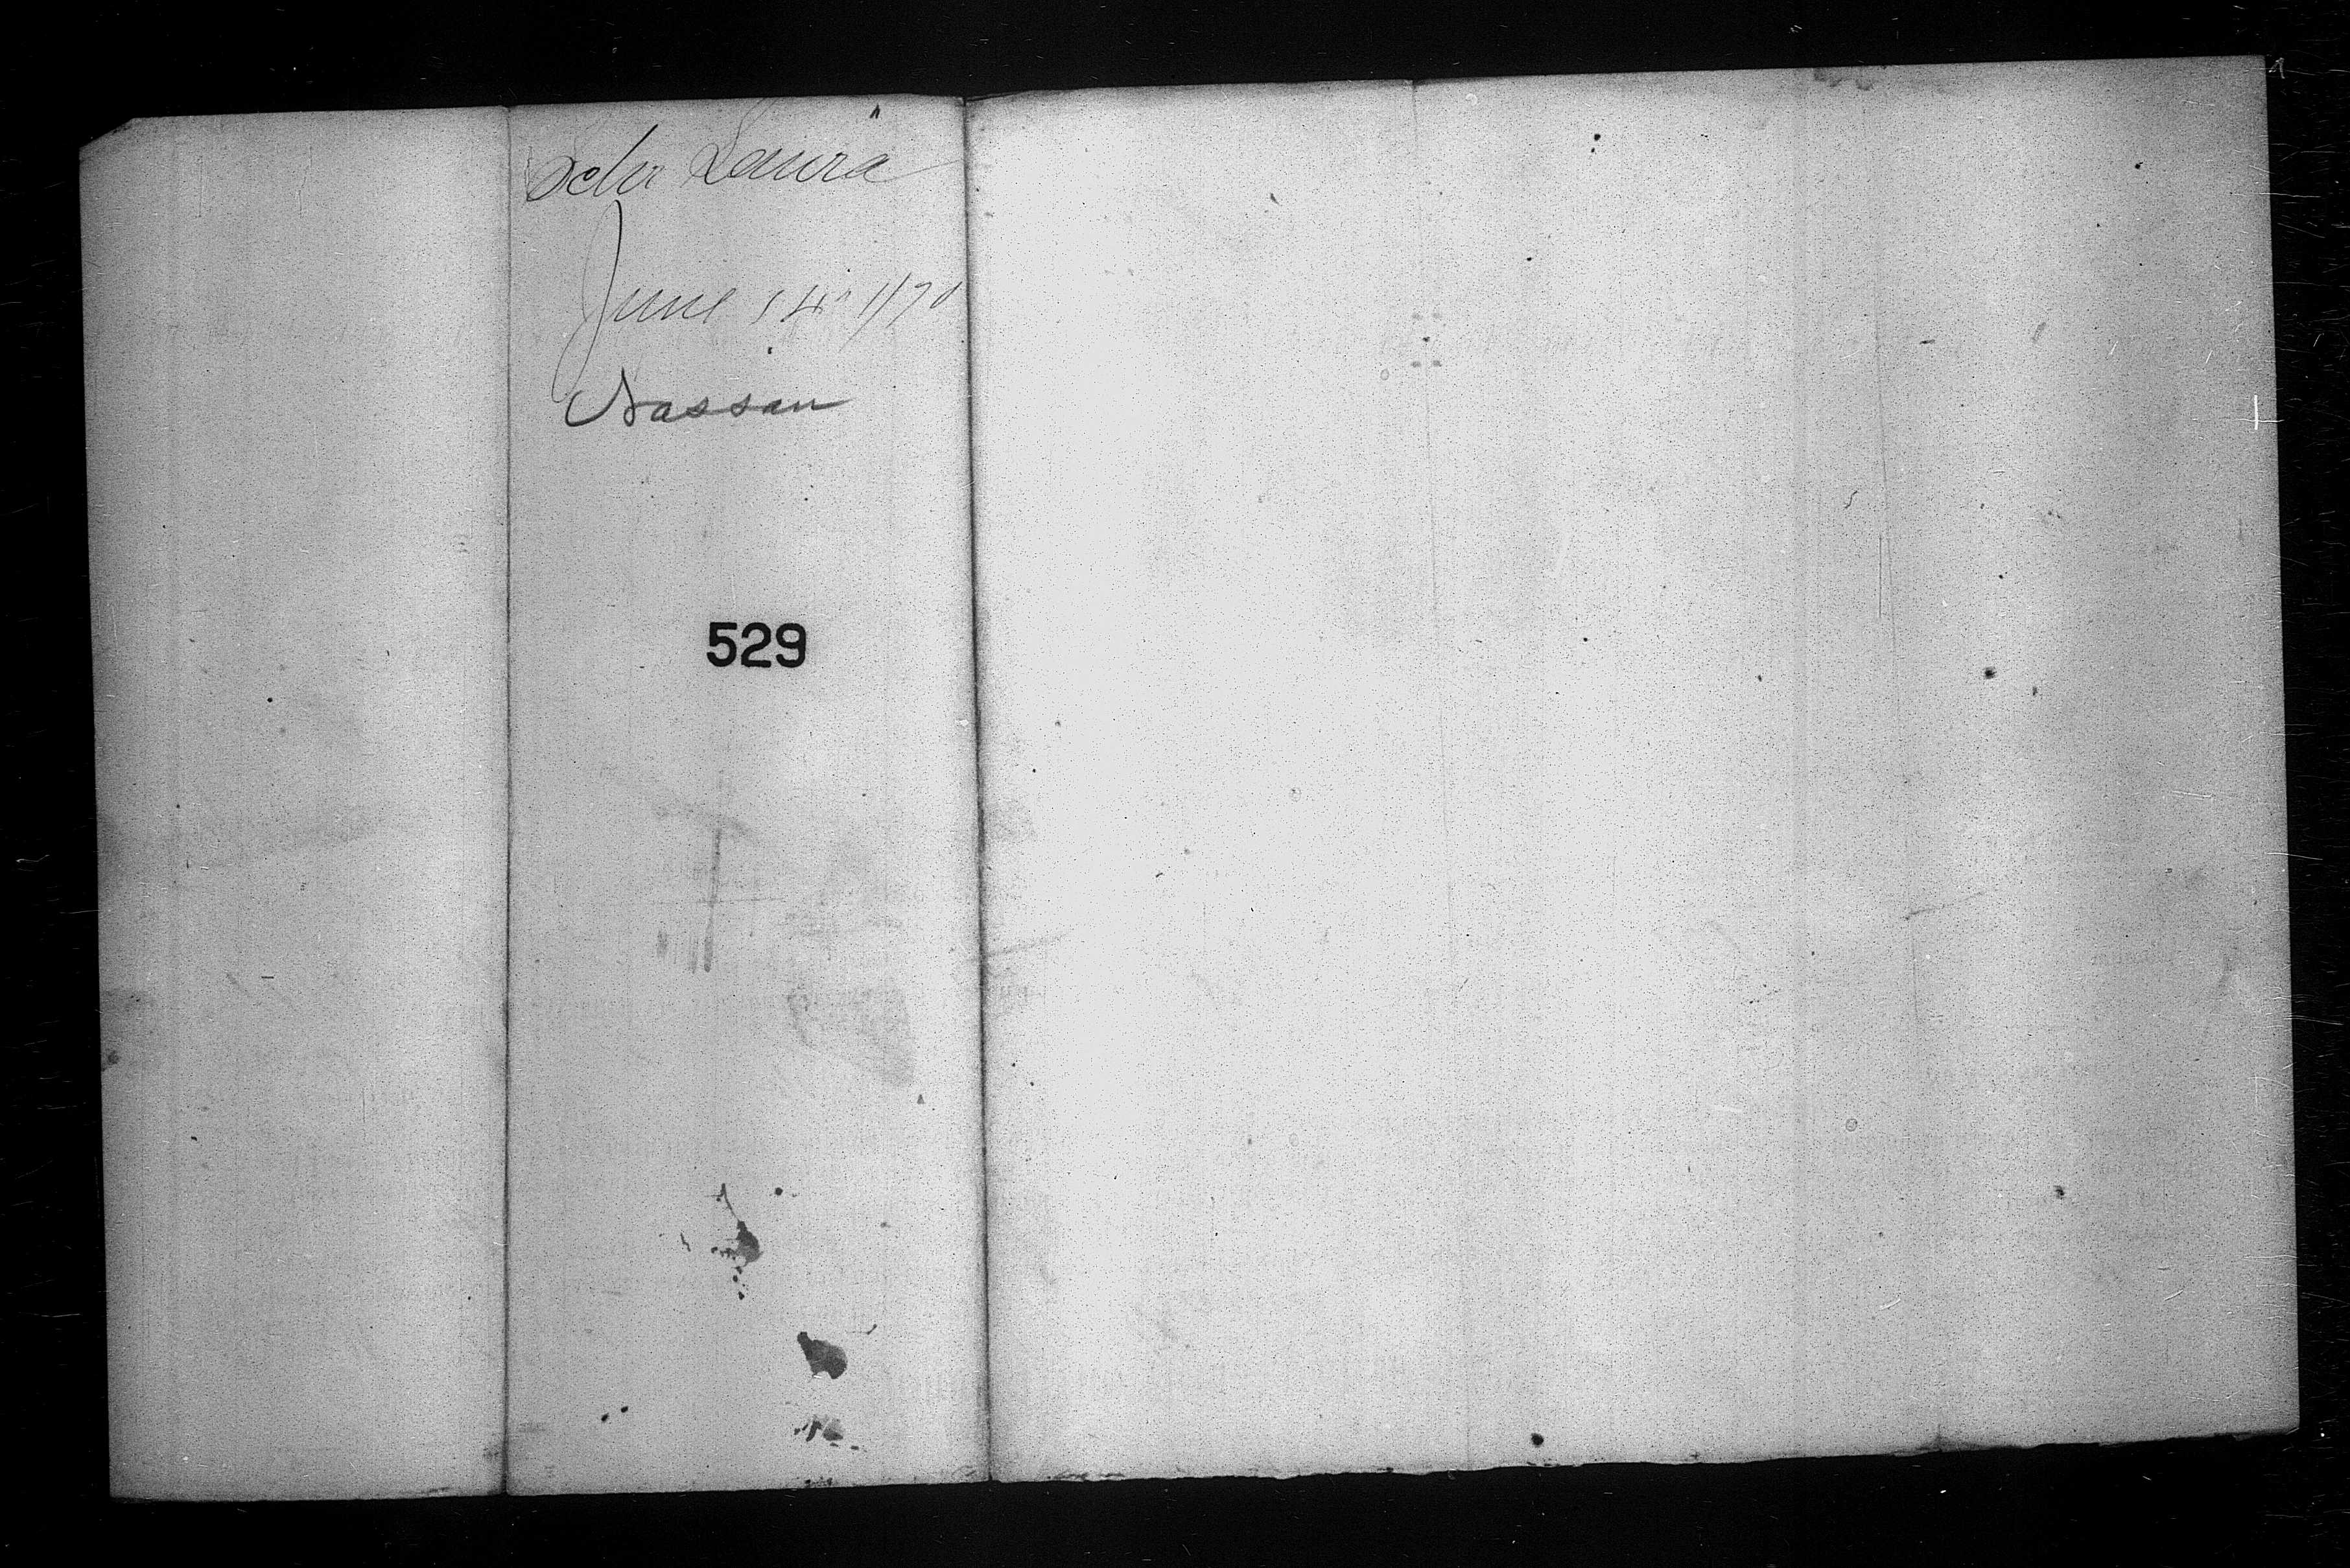 Schr Laura
June 14" 1/70
Nassau
529